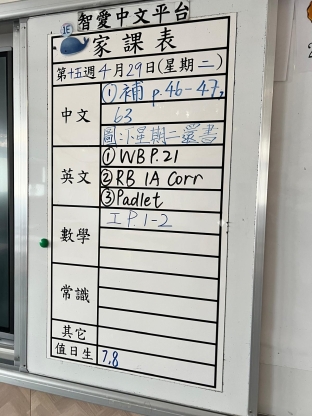 智愛中文平台
1E
家課表
第十五週 4月29日(星期二)
中文
① 補 p.46-47,
63
圖:下星期二還書
英文
① WB P.21
② RB 1A Corr
③ Padlet
數學
工 P.1-2
常識
其它
值日生
7,8